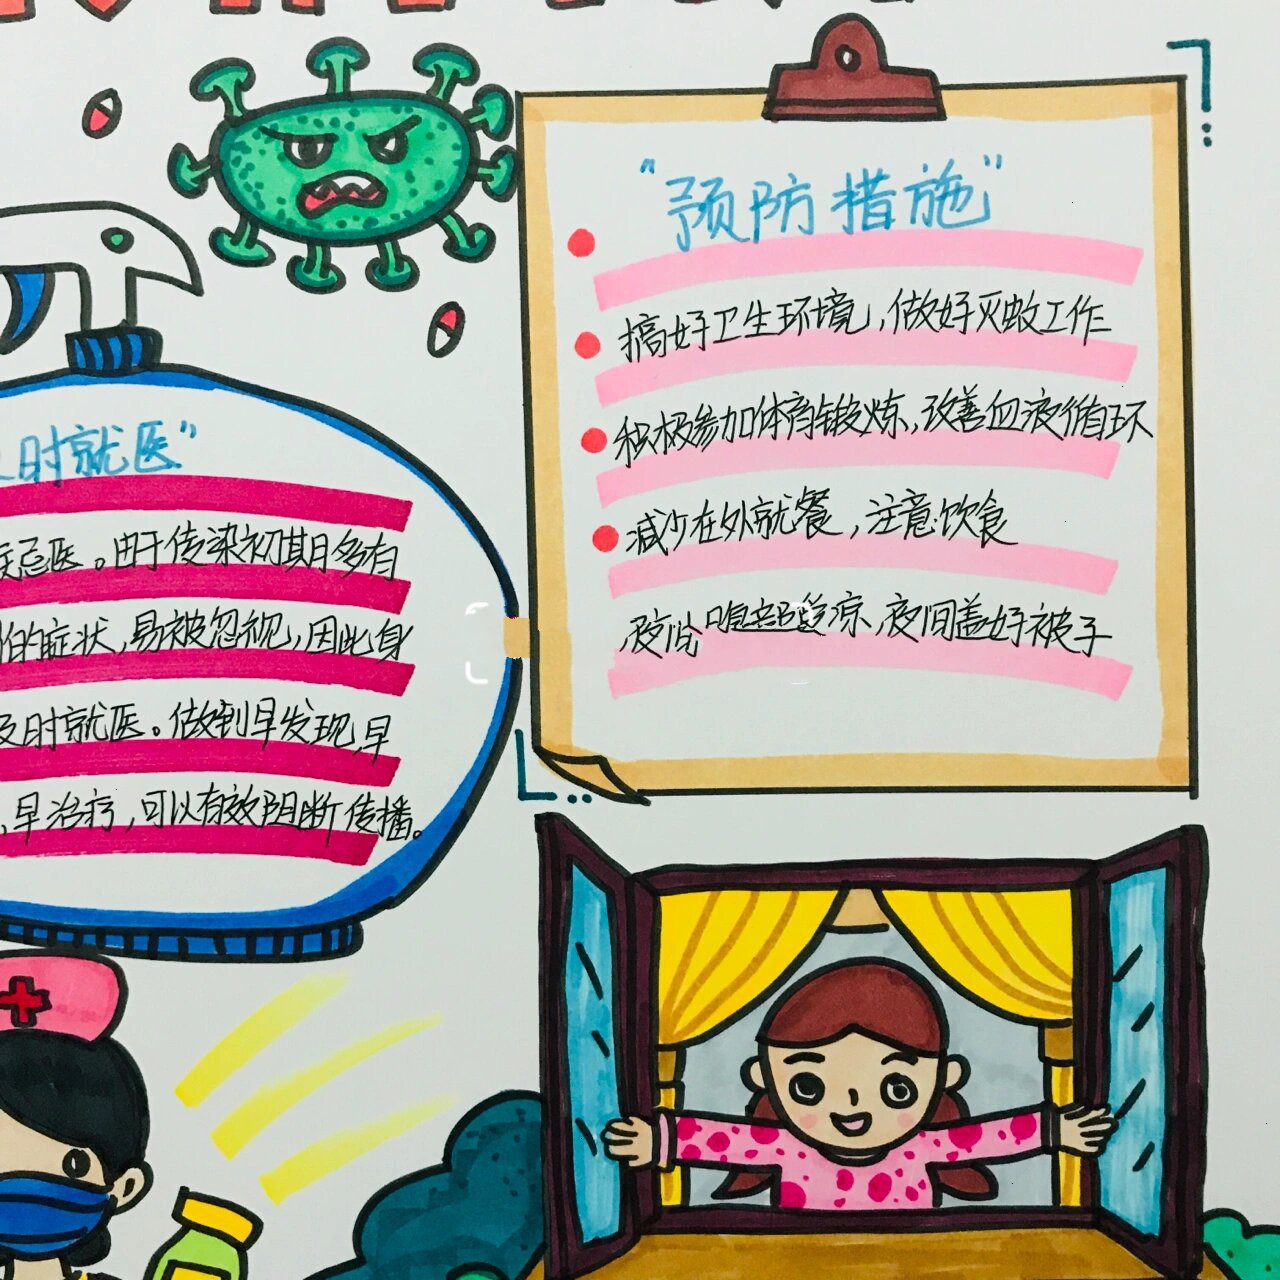 "预防措施"
搞好卫生环境,做好灭蚊工作
积极参加体育锻炼,改善血液循环
减少在外就餐,注意饮食
腹部受凉,夜间盖好被子
时就医"
忌医。由于传染初期多有
的症状,易被忽视,因此身
及时就医。做到早发现,早
,早治疗,可以有效阻断传播。